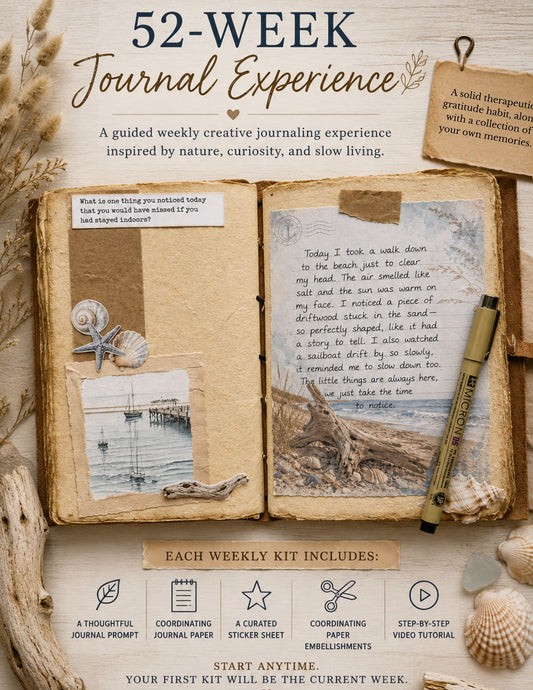 52-WEEK
Journal Experience
A guided weekly creative journaling experience
inspired by nature, curiosity, and slow living.
A solid therapeutic
gratitude habit, alon
with a collection of
your own memories.
What is one thing you noticed today
that you would have missed if you
had stayed indoors?
Today I took a walk down
to the beach just to clear
my head. The air smelled like
salt and the sun was warm on
my face. I noticed a piece of
driftwood stuck in the sand—
so perfectly shaped, like it had
a story to tell. I also watched
a sailboat drift by so slowly,
it reminded me to slow down too.
The little things are always here,
we just take the time
to notice.
MICRON
EACH WEEKLY KIT INCLUDES:
A THOUGHTFUL
JOURNAL PROMPT
COORDINATING
JOURNAL PAPER
A CURATED
STICKER SHEET
COORDINATING
PAPER
EMBELLISHMENTS
STEP-BY-STEP
VIDEO TUTORIAL
START ANYTIME.
YOUR FIRST KIT WILL BE THE CURRENT WEEK.